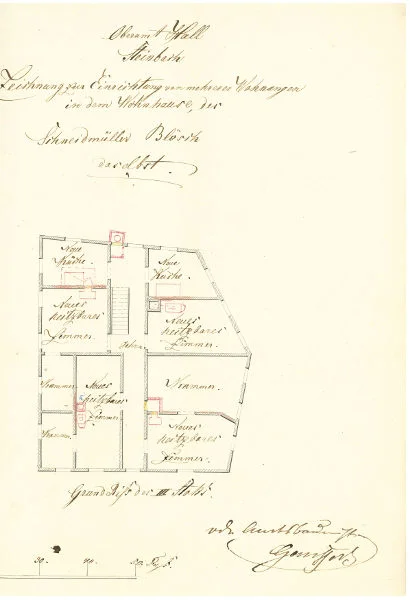 Oberamt Hall
Steinbach
Zeichnung zur Einrichtung von mehreren Wohnungen
in dem Wohnhause, des
Schneidmüller Blösch
daselbst.
Neue
Küche.
Neue
Küche.
Neues
heitzbares
Zimmer.
Neues
heitzbares
Zimmer.
Kammer
Neues
heitzbares
Zimmer.
Kammer.
Kammer.
Neues
heitzbares
Zimmer.
Grund Riß des III Stoks.
vdt. Amtsbaumeister
30. 40. 50.